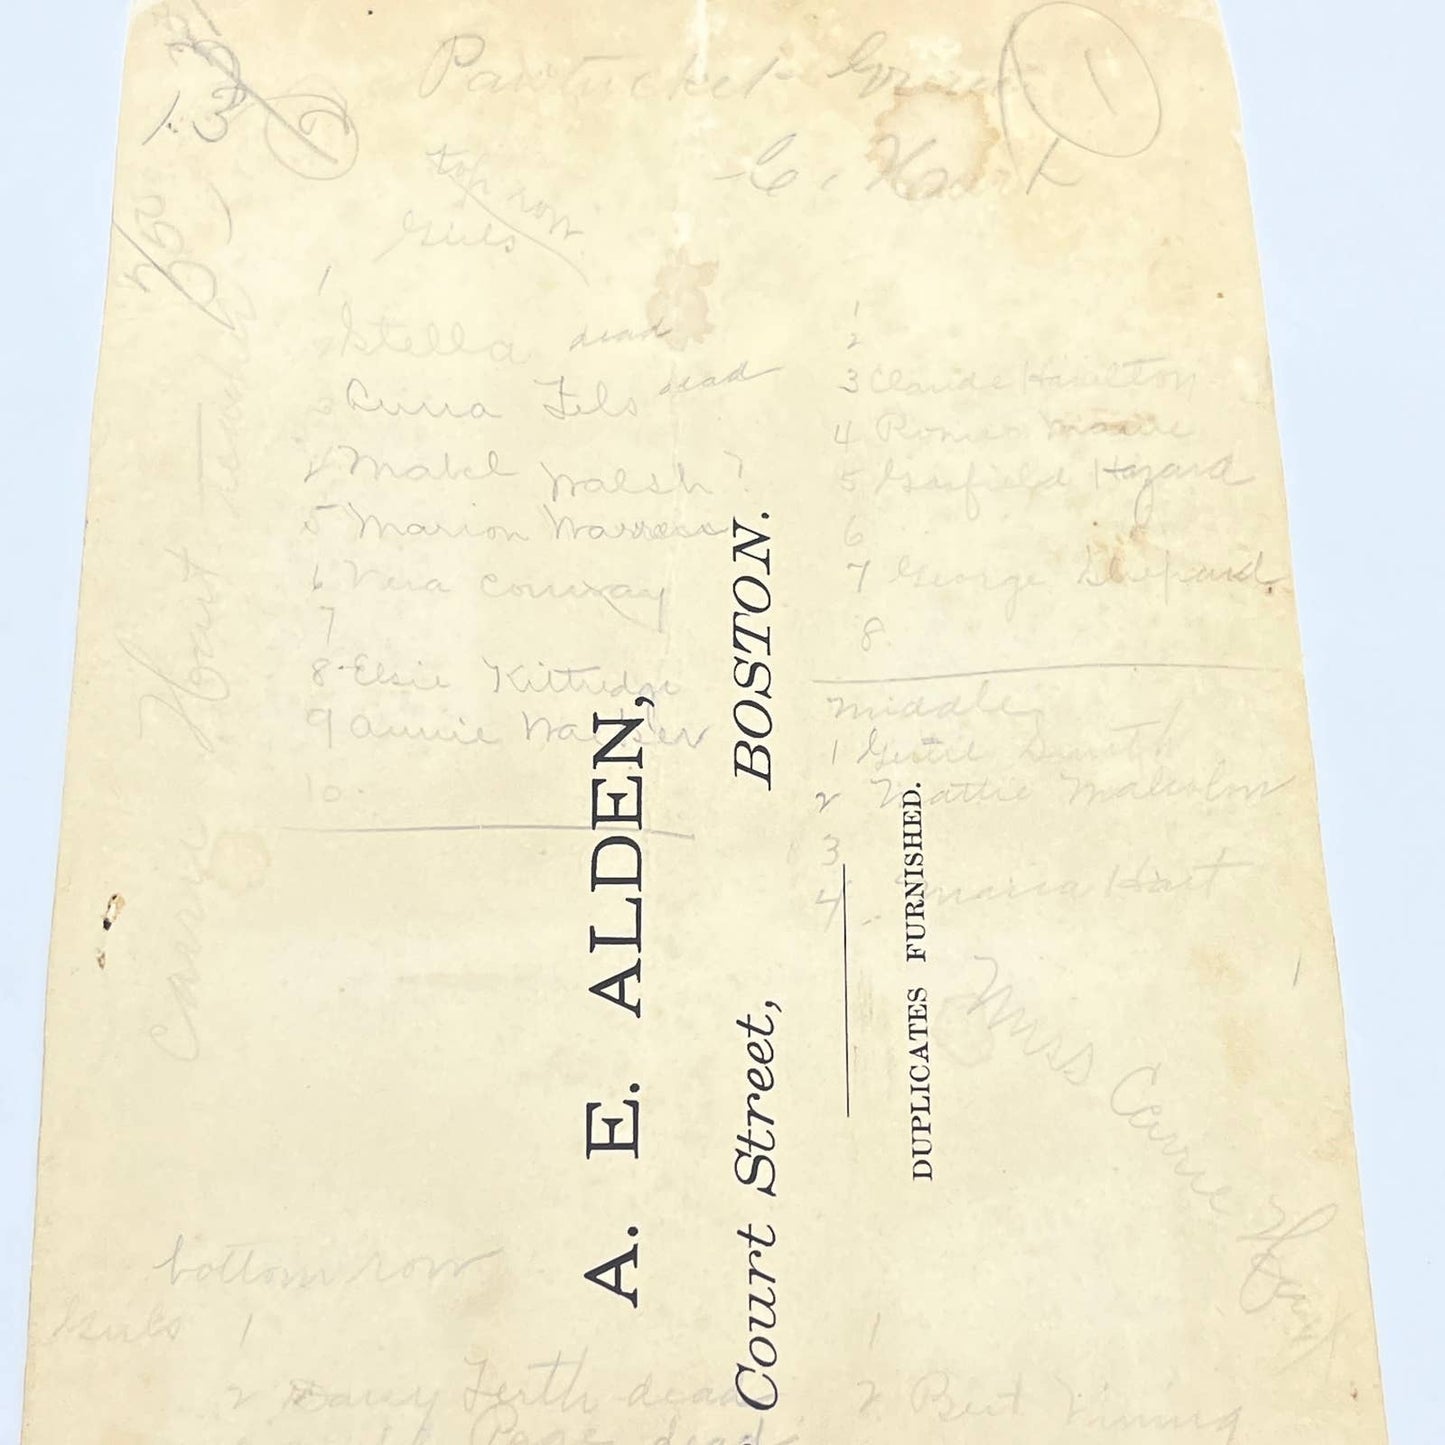 Pawtucket
13
1
C. Hart
top row
Girls
1
Stella dead
Anna Fels dead
4 Mabel Walsh ?
5 Marion Warress
6 Vera Conway
7
8 Elsie Kittredge
9 Annie Walker
10.
1
2
3 Claude Hamilton
4 Romeo
5 Garfield Hazard
6
7 George Shepard
8
middle
1 Gertie Smith
2 Mattie Malcolm
3
4 Maria Hart
Carrie Hart
Miss Carrie
A. E. ALDEN,
Court Street, BOSTON.
DUPLICATES FURNISHED.
bottom row
Girls 1
2 dead
Page dead
1
2 Bert Vining